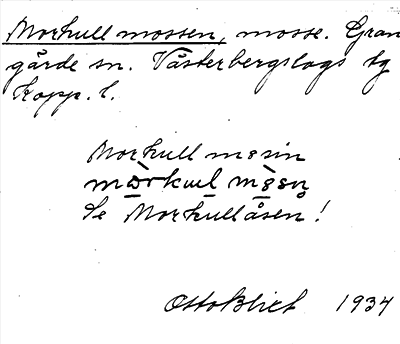 Morkullmossen, mosse. Gran
gärde sn. Västerbergslags tg
Kopp. l.
Morkullmosin
Se Morkullåsen!
Otto Blixt 1934